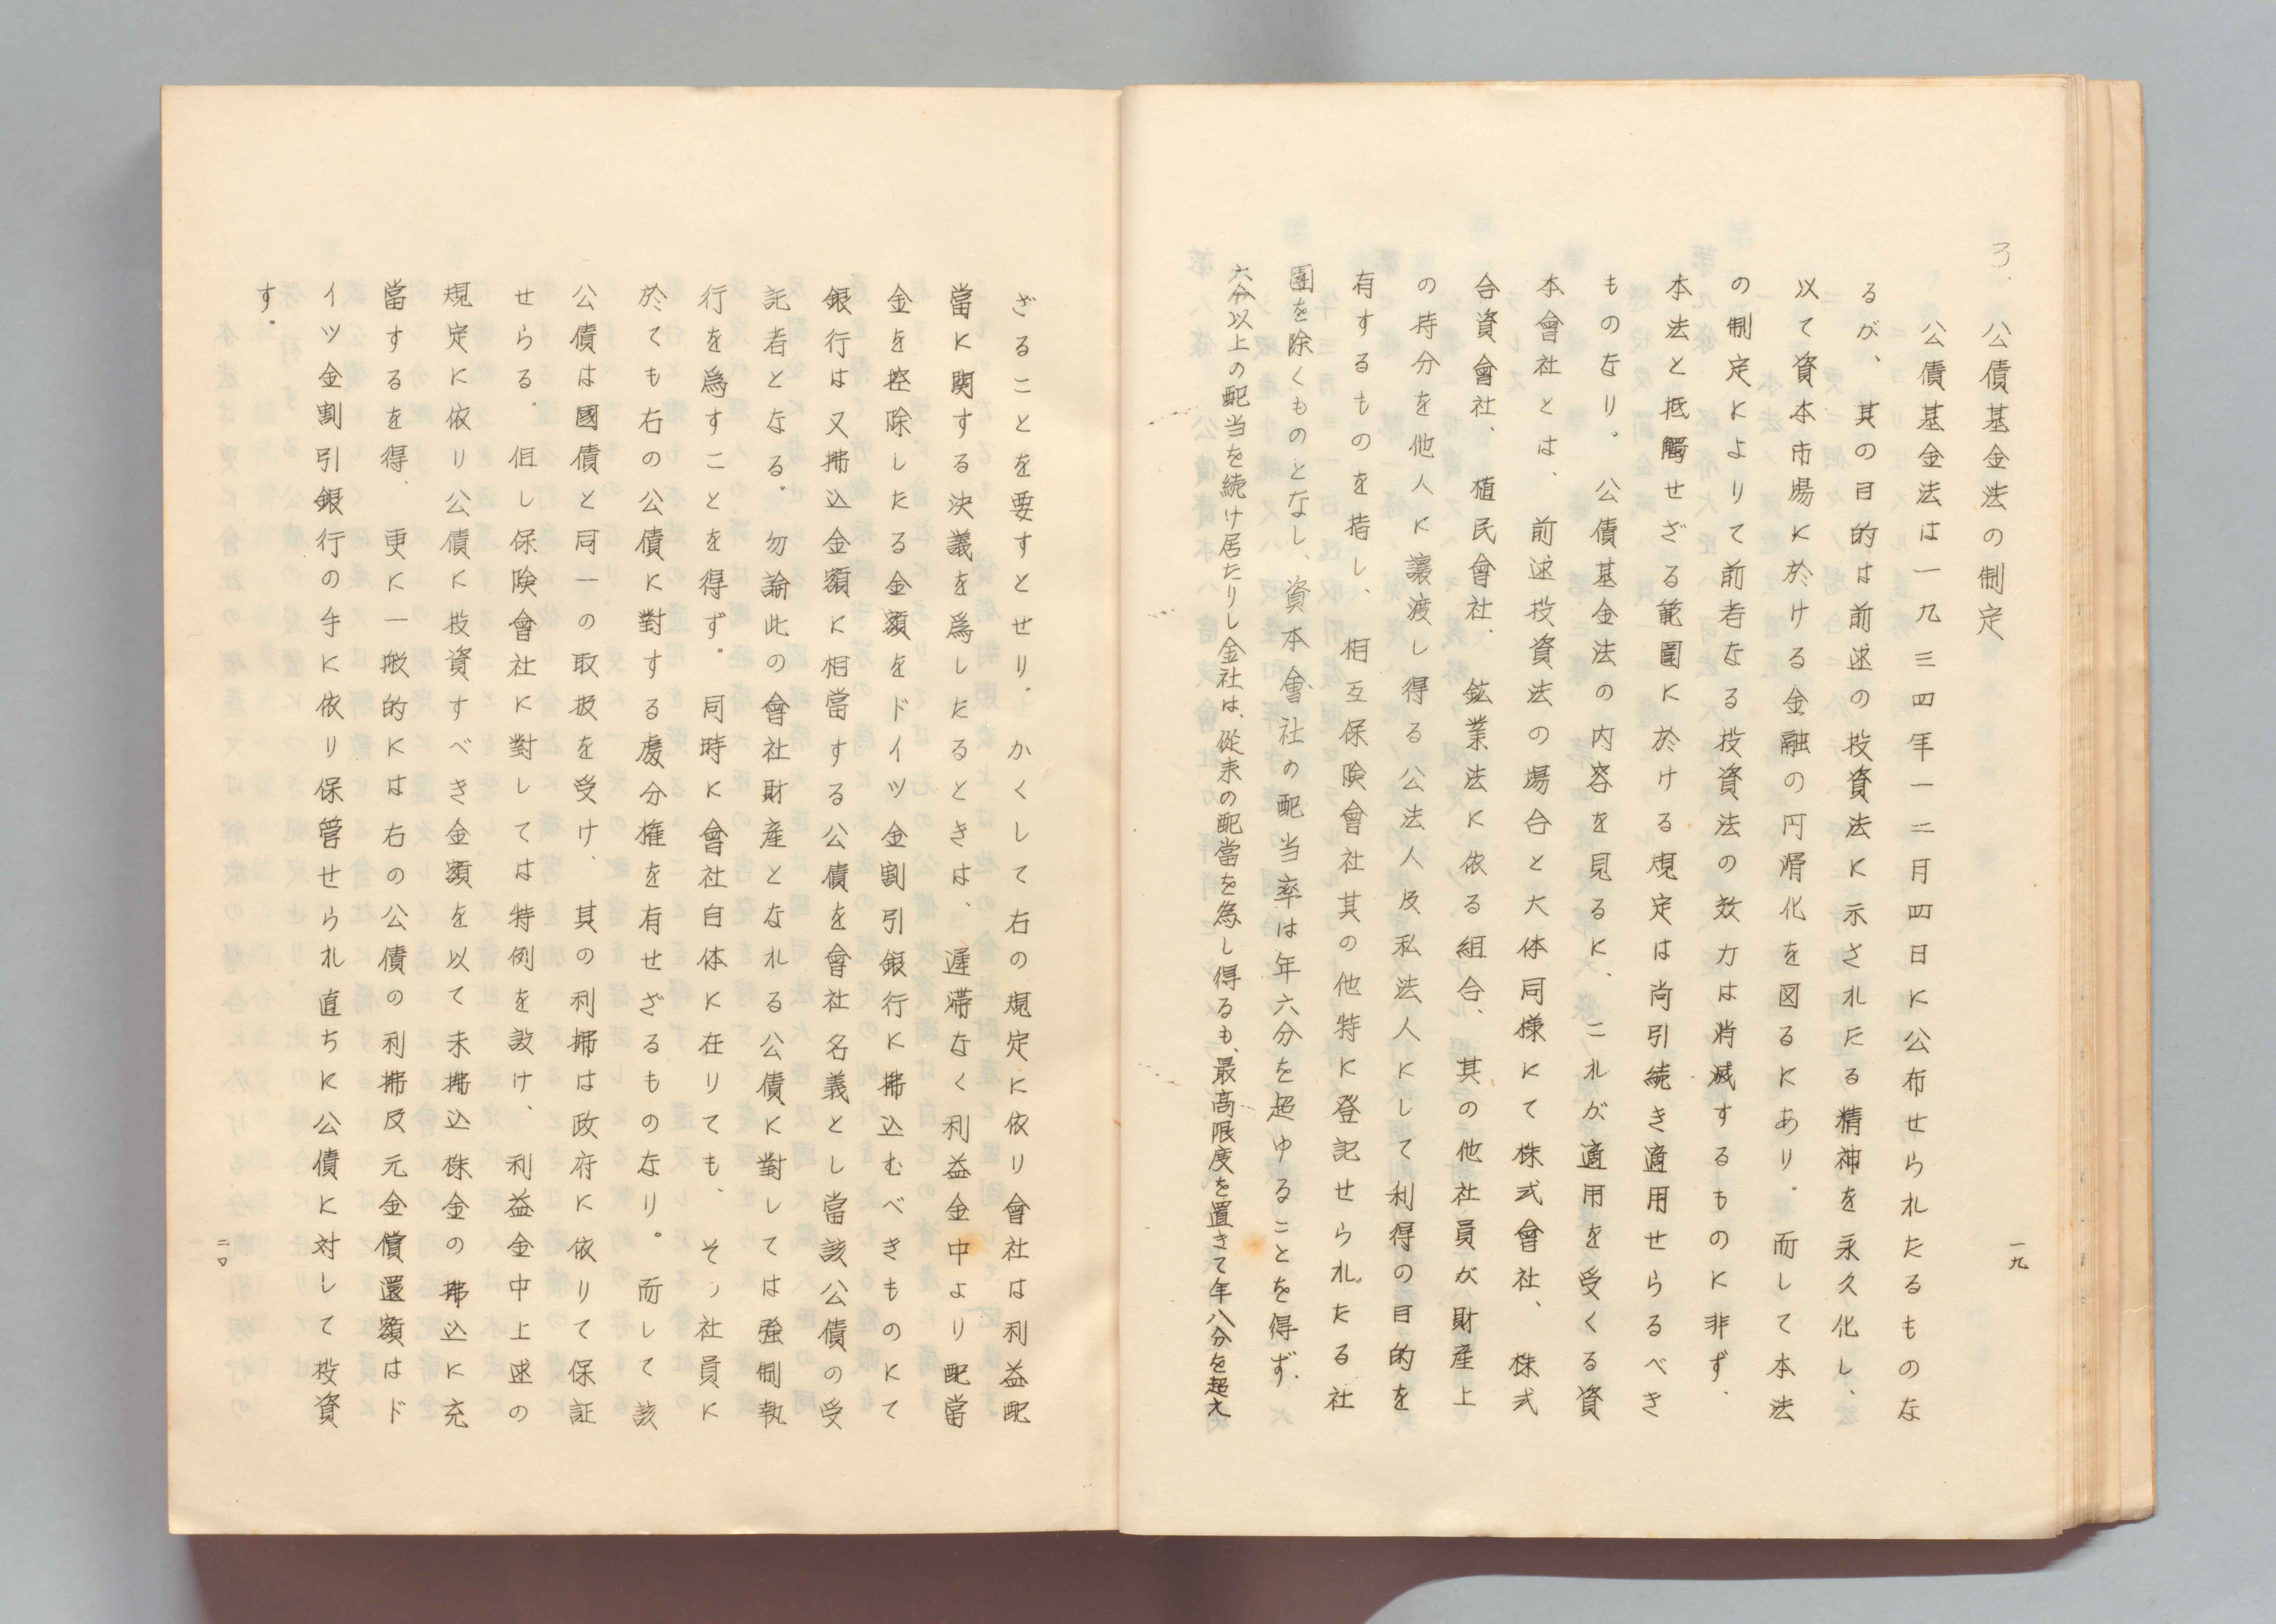 3. 公債基金法の制定
公債基金法は一九三四年一二月四日に公布せられたるものな
るが、其の目的は前述の投資法に示されたる精神を永久化し、
以て資本市場に於ける金融の円滑化を図るにあり。而して本法
の制定によりて前者なる投資法の效力は消滅するものに非ず、
本法と抵觸せざる範圍に於ける規定は尚引続き適用せらるべき
ものなり。公債基金法の内容を見るに、これが適用を受くる資
本會社とは、前述投資法の場合と大体同様にて株式會社、株式
合資會社、植民會社、鉱業法に依る組合、其の他社員が財産上
の持分を他人に讓渡し得る公法人及私法人にして利得の目的を
有するものを指し、相互保険會社其の他特に登記せられたる社
團を除くものとなし、資本會社の配当率は年六分を超ゆることを得ず、
六分以上の配当を続け居たりし会社は、従来の配當を為し得るも、最高限度を置きて年八分を超え
一九
ざることを要すとせり。かくして右の規定に依り會社は利益配
當に関する決議を爲したるときは、遅滞なく利益金中より配當
金を控除したる金額をドイツ金割引銀行に拂込むべきものにて
銀行は又拂込金額に相當する公債を會社名義とし當該公債の受
託者となる。勿論此の會社財産となれる公債に對しては強制執
行を爲すことを得ず。同時に會社自体に在りても、その社員に
於ても右の公債に對する處分権を有せざるものなり。而して該
公債は國債と同一の取扱を受け、其の利拂は政府に依りて保証
せらる。但し保険會社に對しては特例を設け、利益金中上述の
規定に依り公債に投資すべき金額を以て未拂込株金の拂込に充
當するを得、更に一般的には右の公債の利拂及元金償還額はド
イツ金割引銀行の手に依り保管せられ直ちに公債に対して投資
す。
二〇